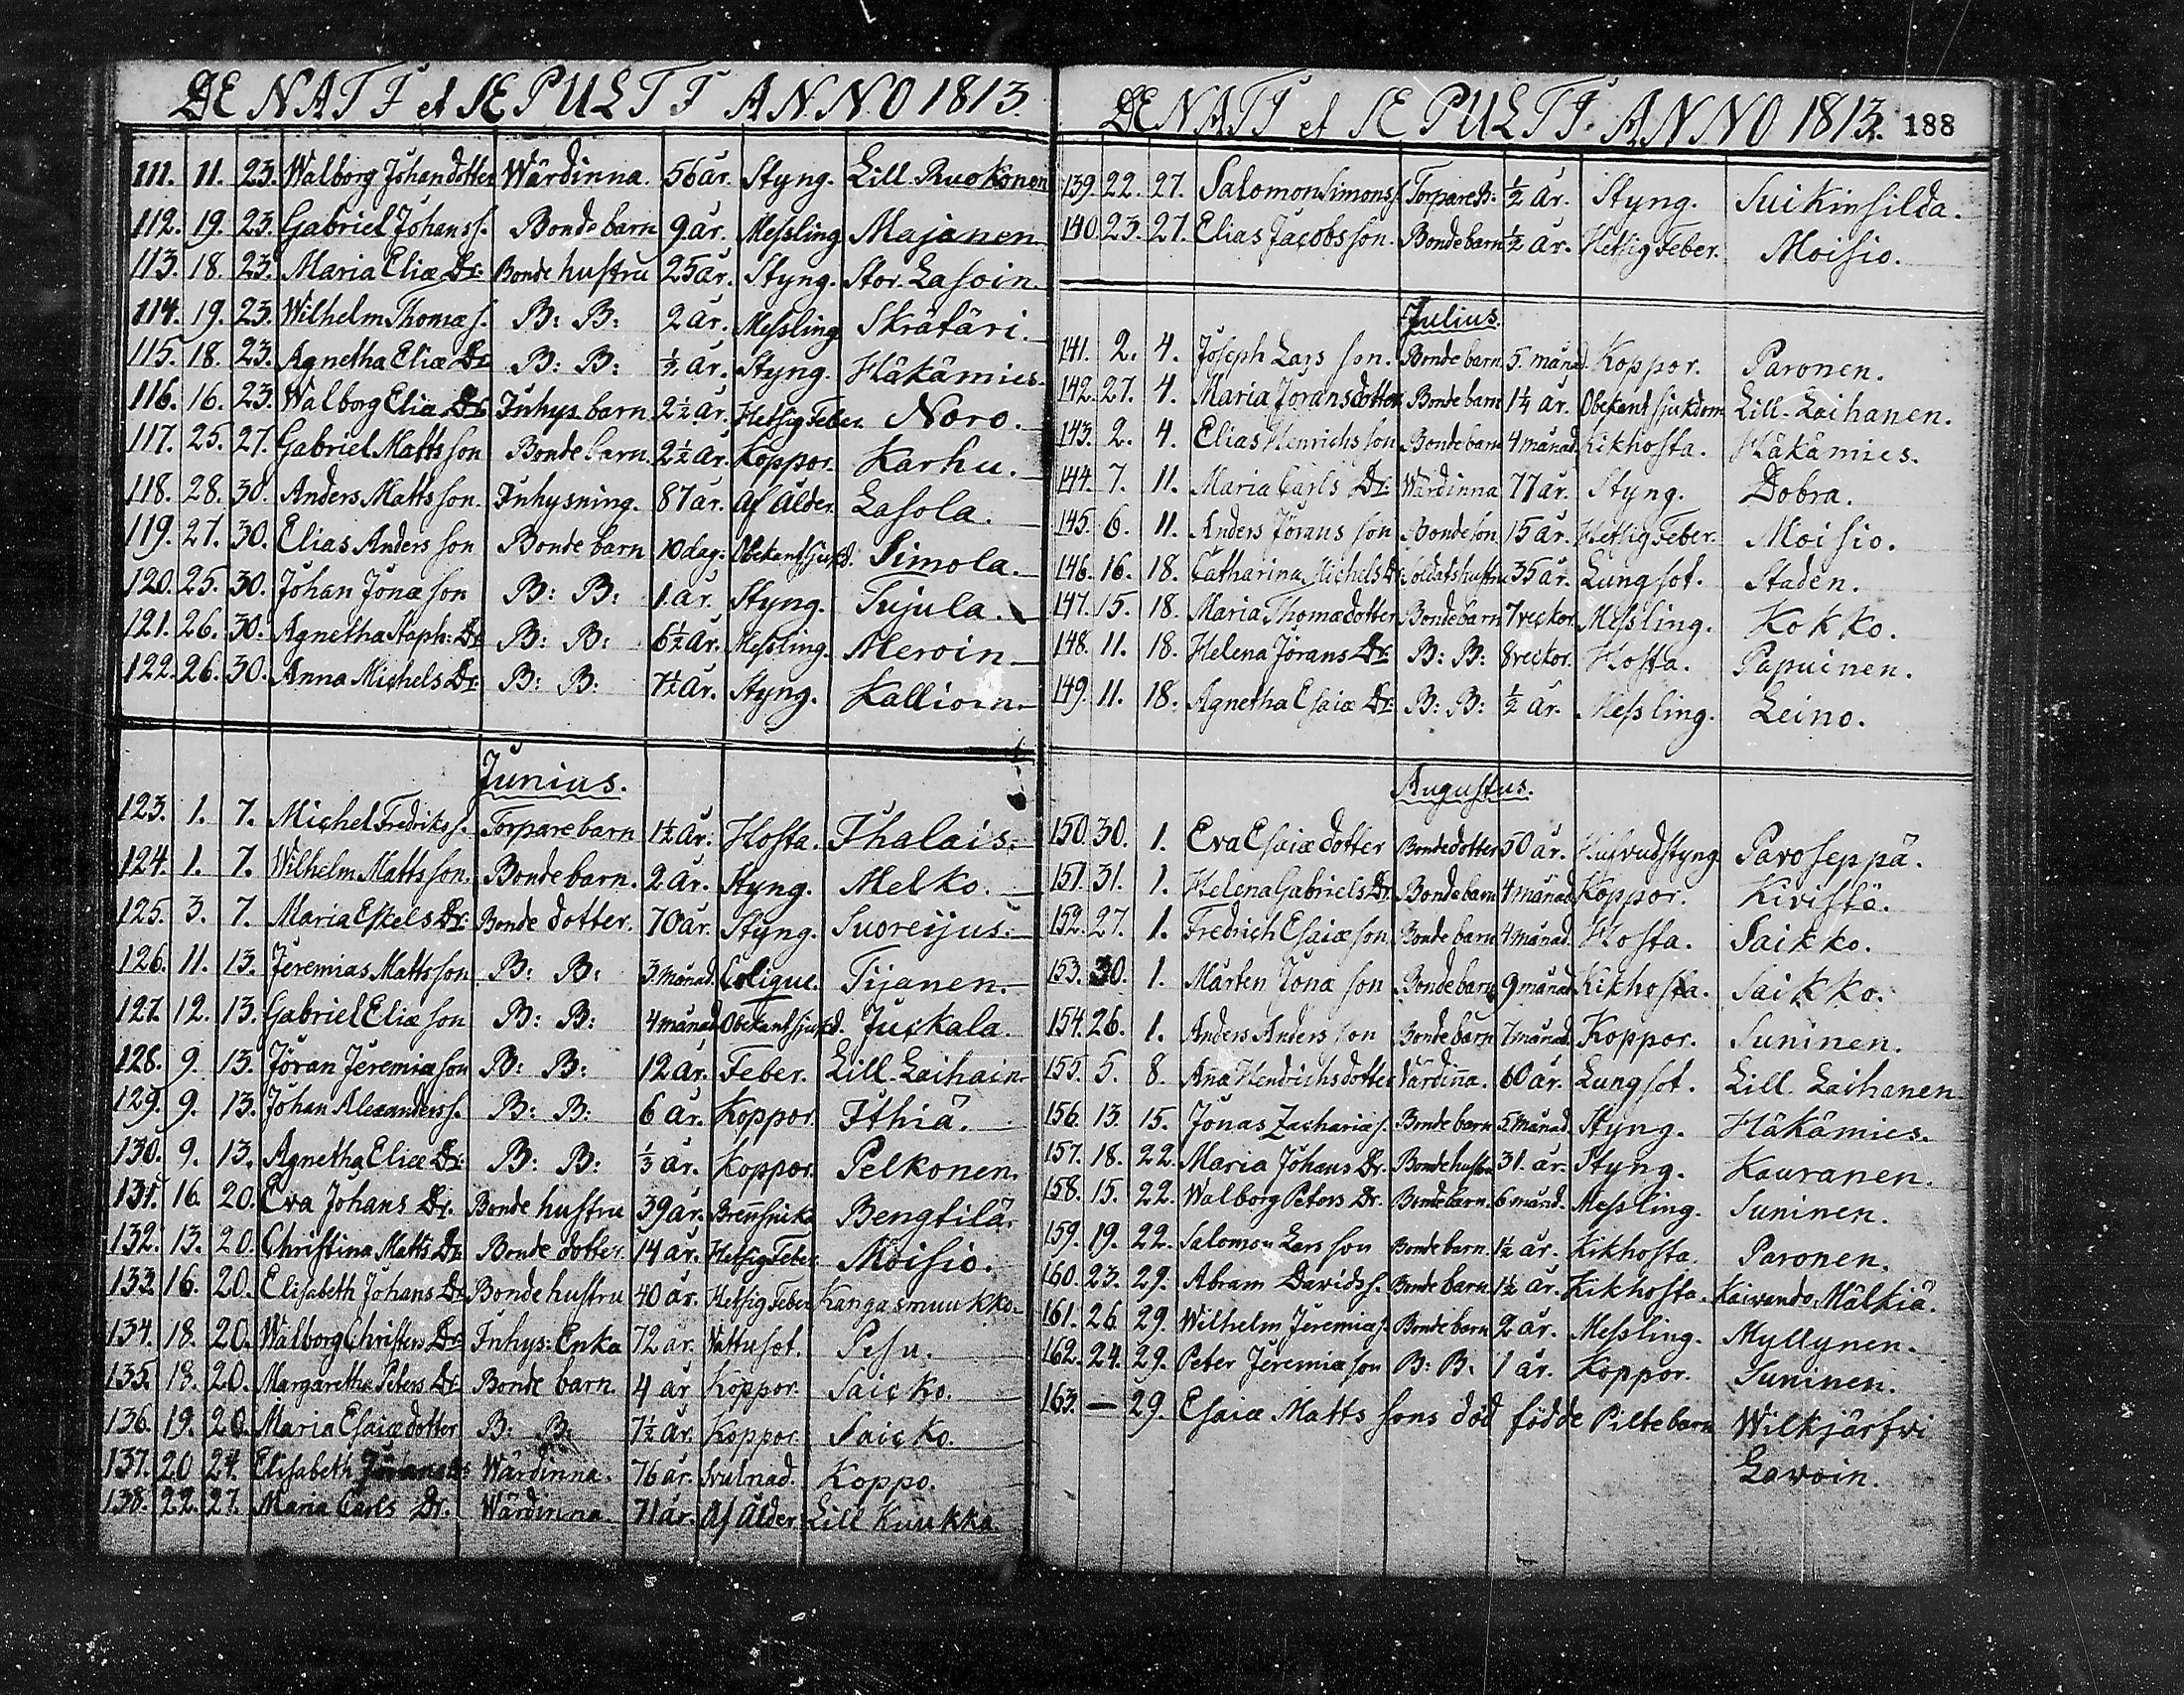 DENATI et SEPULTI ANNO 1813.
111. 11. 23. Walborg Johan dotter Wärdinna. 56 år. Styng. Lill. Ruokonen
112. 19. 23. Gabriel Johans s. Bonde barn 9 år. Messling Majanen
113. 18. 23. Maria Eliæ Dr. Bonde hustru 25 år. Styng. Stor. Lasoin.
114. 19. 23. Wilhelm Thomæ s. B: B: 2 år. Messling Skräfäri.
115. 18. 23. Agnetha Eliæ Dr. B: B: ½ år. Styng. Häkämies.
116. 16. 23. Walborg Eliæ Dr. Inhys barn 2½ år. Hetsig Feber. Noro.
117. 25. 27. Gabriel Matts son Bonde barn. 2½ år. Koppor. Karhu.
118. 28. 30. Anders Matts son. Inhysning. 87 år. Af ålder. Lasola.
119. 27. 30. Elias Anders son Bonde barn 10 dag. Obekant sjukd. Simola.
120. 25. 30. Johan Jonæ son B: B: 1. år. Styng. Tujula.
121. 26. 30. Agnetha Staph: Dr. B: B: 6½ år. Messling. Meroin
122. 26. 30. Anna Michels Dr. B: B: 7½ år. Styng. Kallioin.
Junius.
123. 1. 7. Michel Fredriks s. Torpare barn 1½ år. Hosta. Ihalais.
124. 1. 7. Wilhelm Matts son. Bonde barn. 2 år. Styng. Melko.
125. 3. 7. Maria Eskels Dr. Bonde dotter. 70 år. Styng. Suoreijus.
126. 11. 13. Jeremias Matts son B: B: 3. månad. Colique. Tijanen.
127. 12. 13. Gabriel Eliæ son B: B: 4 månad. Obekant sjukd. Juckala.
128. 9. 13. Jöran Jeremiæ son B: B: 12 år. Feber. Lill. Laihain.
129. 9. 13. Johan Alexanders s. B: B: 6 år. Koppor. Ithiä.
130. 9. 13. Agnetha Eliæ Dr. B: B: ⅓ år. Koppor. Pelkonen.
131. 16. 20. Eva Johans Dr. Bonde hustru 39 år. Brennsjuka Bengtilä.
132. 13. 20. Christina Matts Dr. Bonde dotter. 14 år. Hetsig Feber Moisio.
133. 16. 20. Elisabeth Johans Dr. Bonde hustru 40 år. Hetsig Feber Kangasmuukko.
134. 18. 20. Walborg Christers Dr. Inhys: Enka 72 år. Vattusot. Pesu.
135. 18. 20. Margaretha Peters Dr. Bonde barn. 4 år Koppor. Saicko.
136. 19. 20. Maria Esaiæ dotter B: B: 7½ år. Koppor. Saicko.
137. 20 24. Elisabeth Jörans Dr. Wärdinna. 76 år. Svulnad. Koppo.
138. 22. 27. Maria Carls Dr. Wärdinna. 71 år. Af ålder. Lill Kuukka.
DENATI et SEPULTI ANNO 1813. 188
139. 22. 27. Salomon Simons s. Torpare B: ½ år. Styng. Suikinsilda.
140. 23. 27. Elias Jacobs son. Bonde barn ½ år. Hetsig Feber. Moisio.
Julius.
141. 2. 4. Joseph Lars son. Bonde barn 5. månad. Koppor. Paronen.
142. 27. 4. Maria Jörans dotter Bonde barn 1¼ år. Obekant sjukdom Lill. Laihanen.
143. 2. 4. Elias Henrichs son Bonde barn 4 månad. Kikhosta. Häkämies.
144. 7. 11. Maria Carls Dr. Wärdinna 77 år. Styng. Dobra.
145. 6. 11. Anders Jörans son Bonde son 15 år. Hetsig Feber. Moisio.
146. 16. 18. Catharina Michels Dr. Soldats hustru 35 år. Lungsot. Staden.
147. 15. 18. Maria Thomæ dotter Bonde barn 7 veckor. Messling. Kokko.
148. 11. 18. Helena Jörans Dr. B: B: 8 veckor. Hosta. Papuinen.
149. 11. 18. Agnetha Esaiæ Dr. B: B: ½ år. Messling. Leino.
Augustus.
150. 30. 1. Eva Esaiæ dotter Bonde dotter 50 år. Hufvudstyng Paroseppä.
151. 31. 1. Helena Gabriels Dr. Bonde barn 4 månad. Koppor. Kivistö.
152. 27. 1. Fredrich Esaiæ son Bonde barn 4 månad. Hosta. Saikko.
153. 30. 1. Mårten Jonæ son Bonde barn 9 månad. Kikhosta. Saikko.
154. 26. 1. Anders Anders son Bonde barn 7 månad. Koppor. Suninen.
155. 5. 8. Aña Hendrichs dotter Värdiña. 60 år. Lungsot. Lill Laihanen
156. 13. 15. Jonas Zachariæ s. Bonde barn 5. månad. Styng. Häkämies.
157. 18. 22. Maria Johans Dr. Bonde hustru 31. år. Styng. Kauranen.
158. 15. 22. Walborg Peters Dr. Bonde barn. 6 månd. Messling. Suninen.
159. 19. 22. Salomon Lars son Bonde barn. 1½ år. Kikhosta. Paronen.
160. 23. 29. Abram Davids s. Bonde barn. 1½ år. Kikhosta. Kaivando Mälkiä.
161. 26 29. Wilhelm Jeremiæ s. Bonde barn 2 år. Messling. Myllynen.
162. 24. 29. Peter Jeremiæ son B: B: 1 år. Koppor. Suninen.
163. — 29. Esaiæ Matts sons död födde Pilte barn Wilkjärfvi
Lavoin.